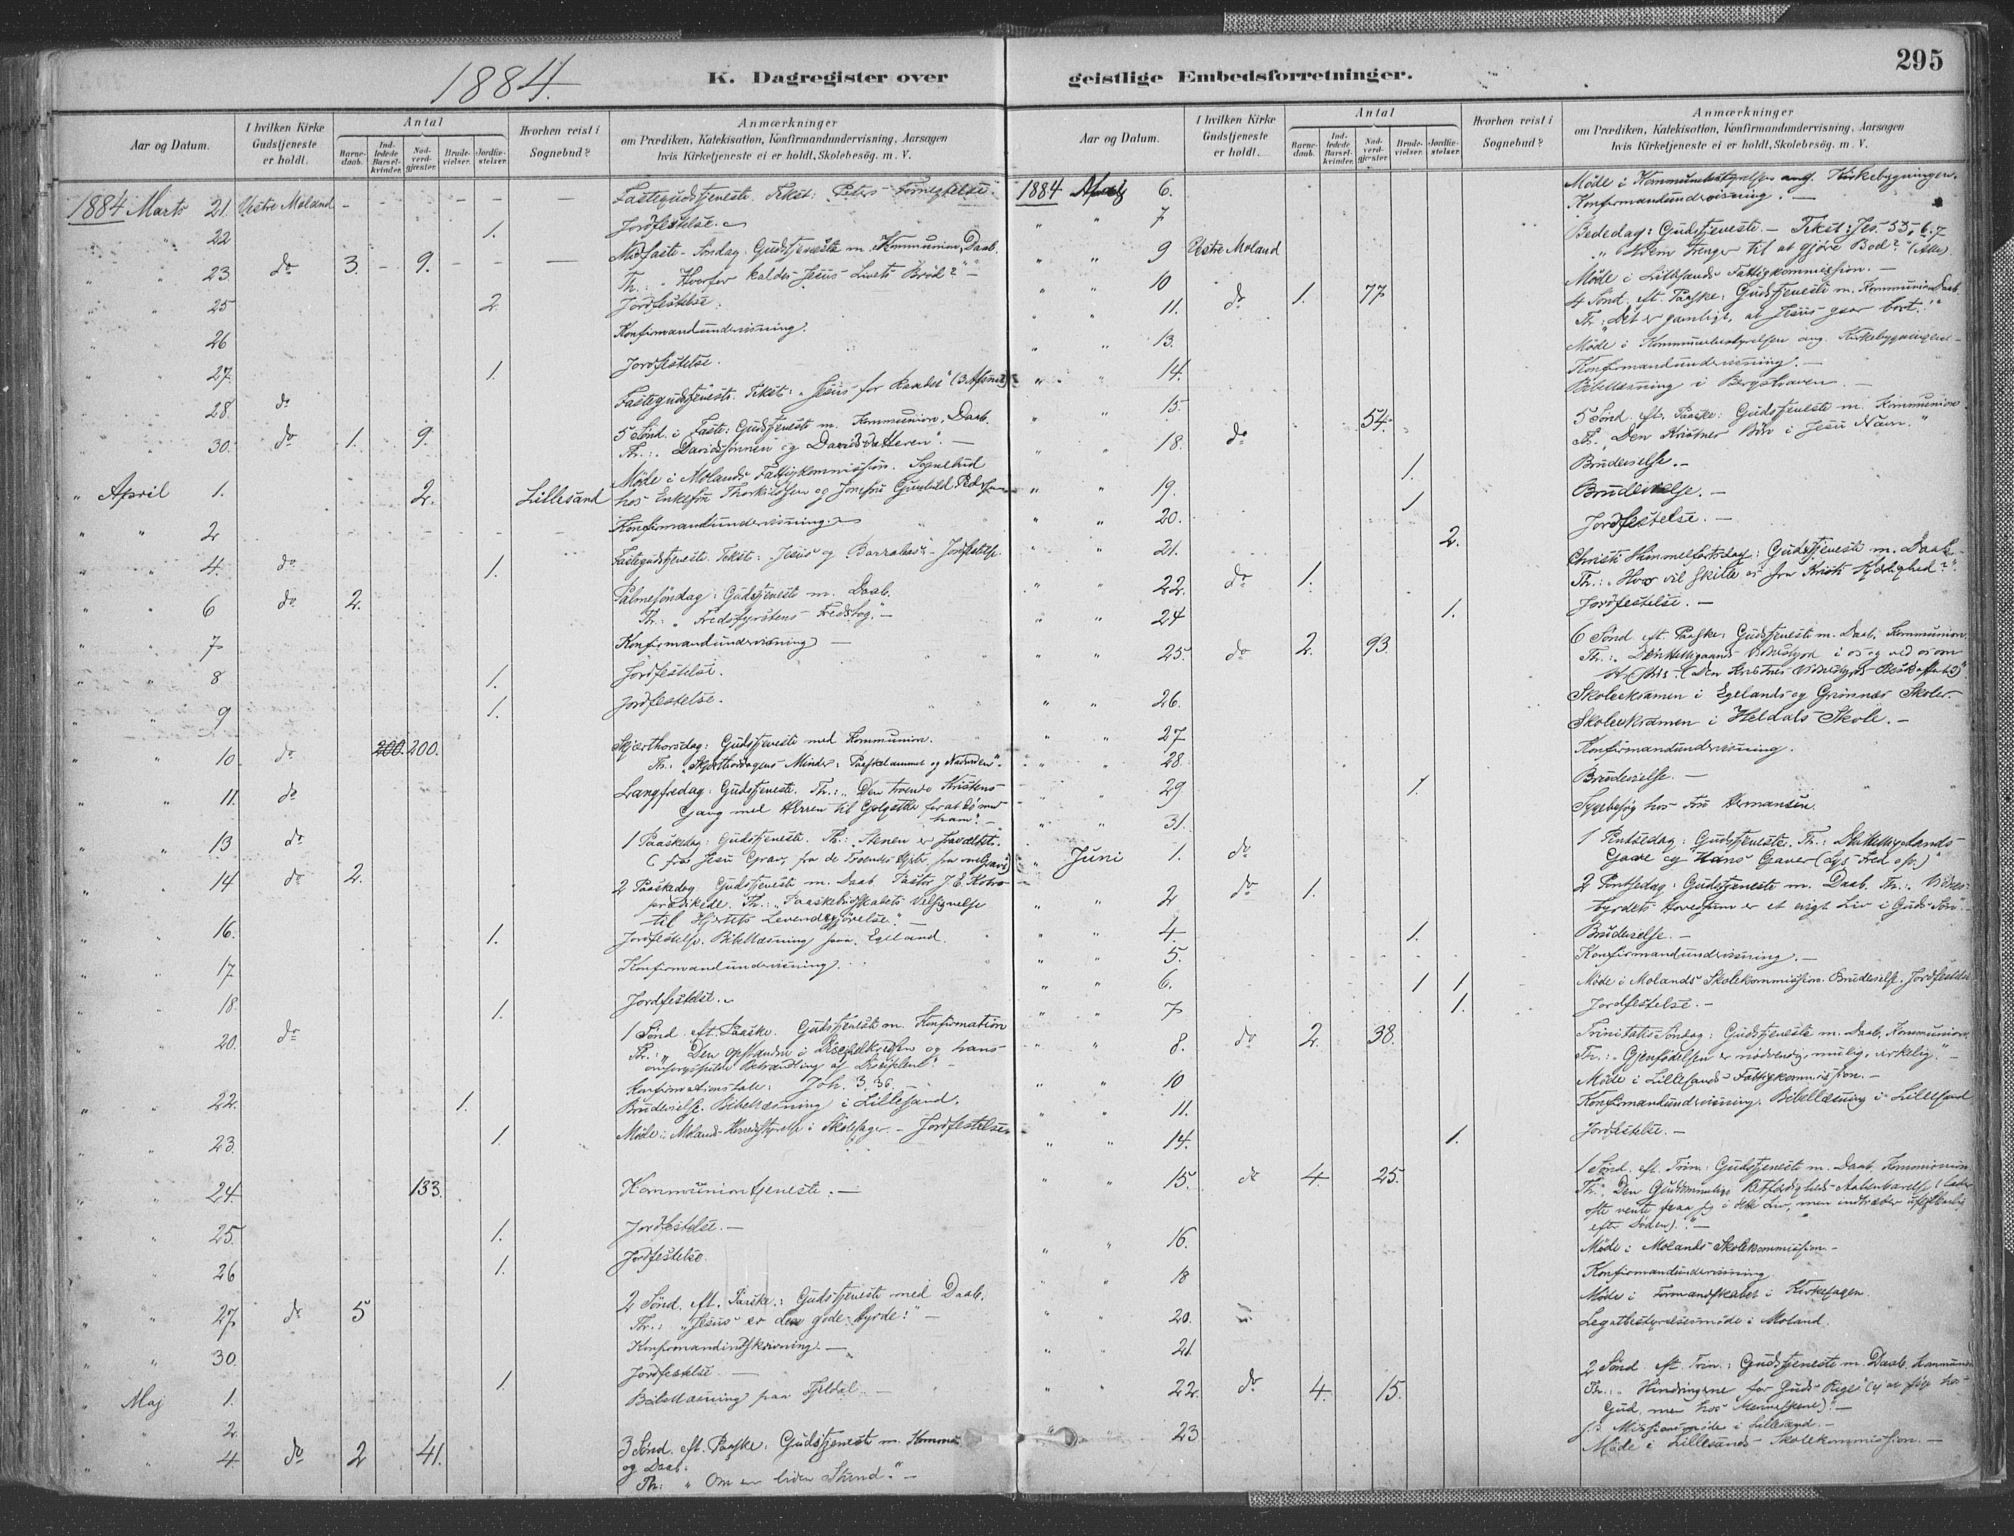 295
1884.
K. Dagregister over geistlige Embedsforretninger.
Aar og Datum.
I hvilken Kirke Gudstjeneste er holdt.
Antal
Barnedaab.
Indledede Barselkvinder.
Nadverdgjæster.
Brudevielser.
Jordfæstelser.
Hvorhen reist i Sognebud?
Anmærkninger
om Prædiken, Katekisation, Konfirmandundervisning, Aarsagen
hvis Kirketjeneste ei er holdt, Skolebesøg. m. V.
1884 Marts 21 Vestre Moland - - - - - - Fastegudstjeneste. Tekst: Peters Fornegtelse.
" " 22 1. Jordfestelse.
" " 23 do 3. - 9. - - Midfaste-Søndag. Gudstjeneste m. Kommunion, Daab.
Th.: "Hvorfor kaldes Jesus Livets Brød?" -
" " 25 2. Jordfestelse.
" " 26 Konfirmandundervisning.
" " 27. 1. Jordfestelse.
" " 28 do Fastegudstjeneste. Tekst: "Jesus for Raadet" (3. Afsnit)
" " 30. do 1. 9. 5 Sønd. i Faste: Gudstjeneste m. Kommunion, Daab.
Th.: "Davidssønnen og Davids Herren". -
" April 1. 2. Lillesand Møde i Molands Fattigkommission. Sognebud
hos Enkefru Thorkildsen og Jomfru Gunhild Pedersen
" " 2 - Konfirmandundervisning.
" " 4. do 1. Fastegudstjeneste. Tekst: Jesus og Barrabas. - Jordfestelse
" " 6 do 2. Palmesøndag: Gudstjeneste m. Daab.
Th.: "Fredsfyrstens Fredstog." -
" " 7 Konfirmandundervisning -
" " 8 1. Jordfestelse.
" " 9 1. Jordfestelse.
" " 10 do 200. 200. Skjærthorsdag: Gudstjeneste med Kommunion.
Th.: "Skjærthorsdagens Minder: Paaskelammet og Nadveren".
" " 11. do Langfredag: Gudstjeneste. Th.: "Den troende Kristens
Gang med Herren til Golgatha for at dø med
ham". -
" " 13 do 1 Paaskedag: Gudstjeneste. Th.: Stenen er fravæltet
" " 14 do 2. 2 Paaskedag. Gudstjeneste m. Daab. Pastor J. E.
prædikede. Th.: "Paaskebudskabets Velsignelse
til Hjertets Levendegjørelse."
" " 16. 1. Jordfestelse. Bibellæsning paa Egeland.
" " 17 Konfirmandundervisning.
" " 18. 1. Jordfestelse.
" " 20. do 1 Sønd. eft. Paaske. Gudstjeneste m. Konfirmation
Th.: "Den opstandne i Discipelkredsen og hans
Konfirmationstale: Joh. 3, 36.
" " 22. 1. Brudevielse. Bibellæsning i Lillesand.
" " 23 1. Møde i Molands Herredstyrelse i Skolesager. - Jordfestelse
" " 24 133. Kommuniontjeneste. -
" " 25. 1. Jordfestelse. -
" " 26 1. Jordfestelse.
" " 27 do 5 2 Sønd. eft. Paaske: Gudstjeneste med Daab.
Th.: "Jesus er den gode Hyrde." -
" " 30. Konfirmandindskrivning. -
" Maj 1. 1. Jordfestelse. -
" " 2. Bibellæsning paa Fjeldal. -
" " 4 do 2 41. 3 Sønd. eft. Paaske: Gudstjeneste m. Kommu
og Daab.
Th: "Om en liden Stund." -
Aar og Datum.
I hvilken Kirke Gudstjeneste er holdt.
Antal
Barnedaab.
Indledede Barselkvinder.
Nadverdgjæster.
Brudevielser.
Jordfæstelser.
Hvorhen reist i Sognebud?
Anmærkninger
om Prædiken, Katekisation, Konfirmandundervisning, Aarsagen
hvis Kirketjeneste ei er holdt, Skolebesøg. m. V.
1884 Maj 6. Møde i Kommunestyrelsen ang. Kirkebygningen.
" " 7 Konfirmandundervisning. -
" " 9 Vestre Moland Bededag: Gudstjeneste. - Tekst: Jes. 53, 6, 7
"Hvem trenger til at gjøre Bod?" (Alle).
" " 10 Møde i Lillesands Fattigkommission. -
" " 11. do 1. 77 4 Sønd. eft. Paaske: Gudstjeneste m. Kommunion Daab.
Th.: "Det er gavnligt, at Jesus gaar bort."
" " 13. Møde i Kommunestyrelsen ang. Kirkebygningen -
" " 14. Konfirmandundervisning. -
" " 15. Bibellæsning i Bergshaven. -
" " 18. do 54. 5 Sønd. eft. Paaske: Gudstjeneste m. Kommunion
Th. "Den Kristnes Bøn i Jesu Navn."
" " 19. 1. Brudevielse. -
" " 20. 1 Brudevielse. -
" " 21. 2. Jordfestelse. -
" " 22. do 1. Christi Himmelfartsdag: Gudstjeneste m. Daab -
Th.: "Hvo vil skille os fra Kristi Kjærlighed?"
" " 24 1. Jordfestelse. -
" " 25. do 2. 93. 6 Sønd. eft. Paaske: Gudstjeneste m. Daab, Kommunion
Th.: "Den Helligaands Vidnesbyrd i os og ved os om
" " 26. Skoleeksamen i Egelands og Grimnes Skoler.
" " 27 Skoleeksamen i Heldals Skole. -
" " 28. Konfirmandundervisning.
" " 29 1. Brudevielse. -
" " 31. Sygebesøg hos Fru Hermansen.
" Juni 1. do 1 Pintsedag: Gudstjeneste. Th.: Den Helligaands
Gave og Hans Gaver
" " 2 do 1. 2 Pintsedag: Gudstjeneste m. Daab. Th.: "Vidnes-
byrdets Hovedsum er et evigt Liv i Guds Søn". -
" " 4. 1. Brudevielse. -
" " 5. Konfirmandundervisning. -
" " 6. 1 1 Møde i Molands Skolekommission. Brudevielse. Jordfestelse
" " 7 1. Jordfestelse. -
" " 8. do 2. 38. Trinitatis Søndag: Gudstjeneste m. Daab, Kommunion.
Th.: "Gjenfødelsen er nødvendig, mulig, virkelig." -
" " 10 Møde i Lillesands Fattigkommission. -
" " 11. Konfirmandundervisning. Bibellæsning i Lillesand
" " 14. 1. Jordfestelse. -
" " 15. do 4. 25. 1 Sønd. eft. Trin: Gudstjeneste m. Daab, Kommunion.
Th.: "Den Guddommelige Retfærdigheds Aabenbarelse (lader
ofte vente paa sig i dette Liv, men indtræder ufeilbarlig
efter Døden)." -
" " 16. Møde i Molands Skolekommission. -
" " 18 Konfirmandundervisning
" " 20. Møde i Formandskabet i Kirkesagen.
" " 21 Legatbestyrelsesmøde i Moland.
" " 22. do 4. 15. 2 Sønd. eft. Trin: Gudstjeneste m. Daab, Kommunion
Th.: "Hindringerne for Guds Rige" (ej at søge hos
Gud, men hos Menneskene)." -
" " 23 Missionsmøde i Lillesand. -
Møde i Lillesands Skolekommission. -